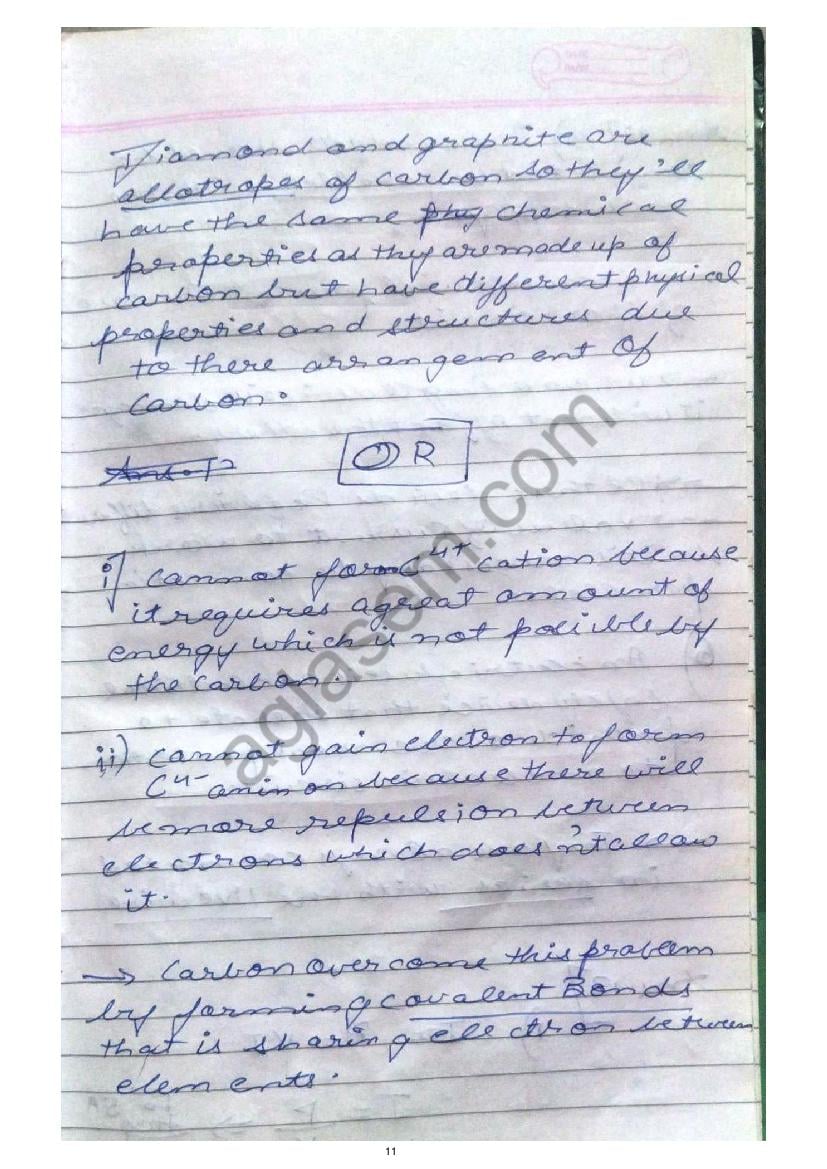 Diamond and graphite are
allotropes of carbon so they'll
have the same phy chemical
properties as they are made up of
carbon but have different physical
properties and structures due
to there arrangement of
carbon.
Ans-12
OR
i) cannot form C4+ cation because
it requires a great amount of
energy which is not posible by
the carbon.
ii) cannot gain electron to form
C4- aninon because there will
be more repulsion between
electrons which does n't allow
it.
→ Carbon over come this problem
by forming covalent Bonds
that is sharing electron between
elements.
aglasem.com
11